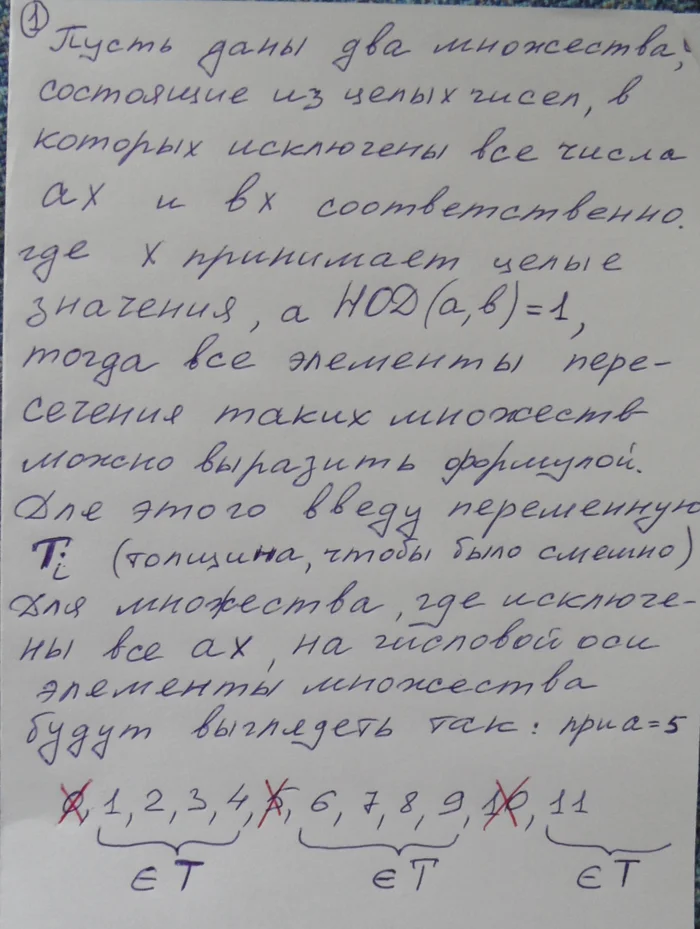 ①
Пусть даны два множества,
состоящие из целых чисел, в
которых исключены все числа
ах и вх соответственно.
где х принимает целые
значения, а НОД(а,в)=1,
тогда все элементы пере-
сечения таких множеств
можно выразить формулой.
Для этого введу переменную
Tᵢ (толщина, чтобы было смешно)
Для множества, где исключе-
ны все ах, на числовой оси
элементы множества
будут выглядеть так: при а=5
0, 1, 2, 3, 4, 5, 6, 7, 8, 9, 10, 11
∈ T ∈ T ∈ T